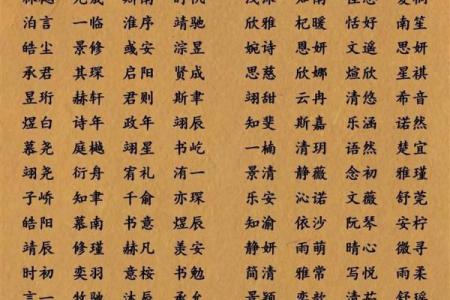 泊言 一临 淮序 靖驰 欣雅 杞暖 恬好 南笙
皓尘 景修 彧安 淙昱 婉诗 恩妍 文遥 恩妍
承君 其琛 启阳 贤成 思慈 欣娜 煊欣 星祺
昱珩 赫轩 君则 斯聿 翊甜 云冉 清悠 希音
煜白 诗年 政年 翊辰 知斐 斯嘉 乐涵 诺然
慕尧 庭樾 翊星 书屹 一楠 清玥 语然 楚宜
翊尧 衍舟 宥礼 洧一 景清 静薇 念初 雅瑾
子峤 知聿 千俞 亦琛 乐安 诺依 文薇 舒莞
皓阳 慕南 书意 煜辰 知渝 依沙 阮琴 安柠
靖辰 修瑾 赫凡 羡安 静妍 雨萌 晴心 微寻
时初 奕羽 意桉 书勉 简清 雅常 写悦 雨柔